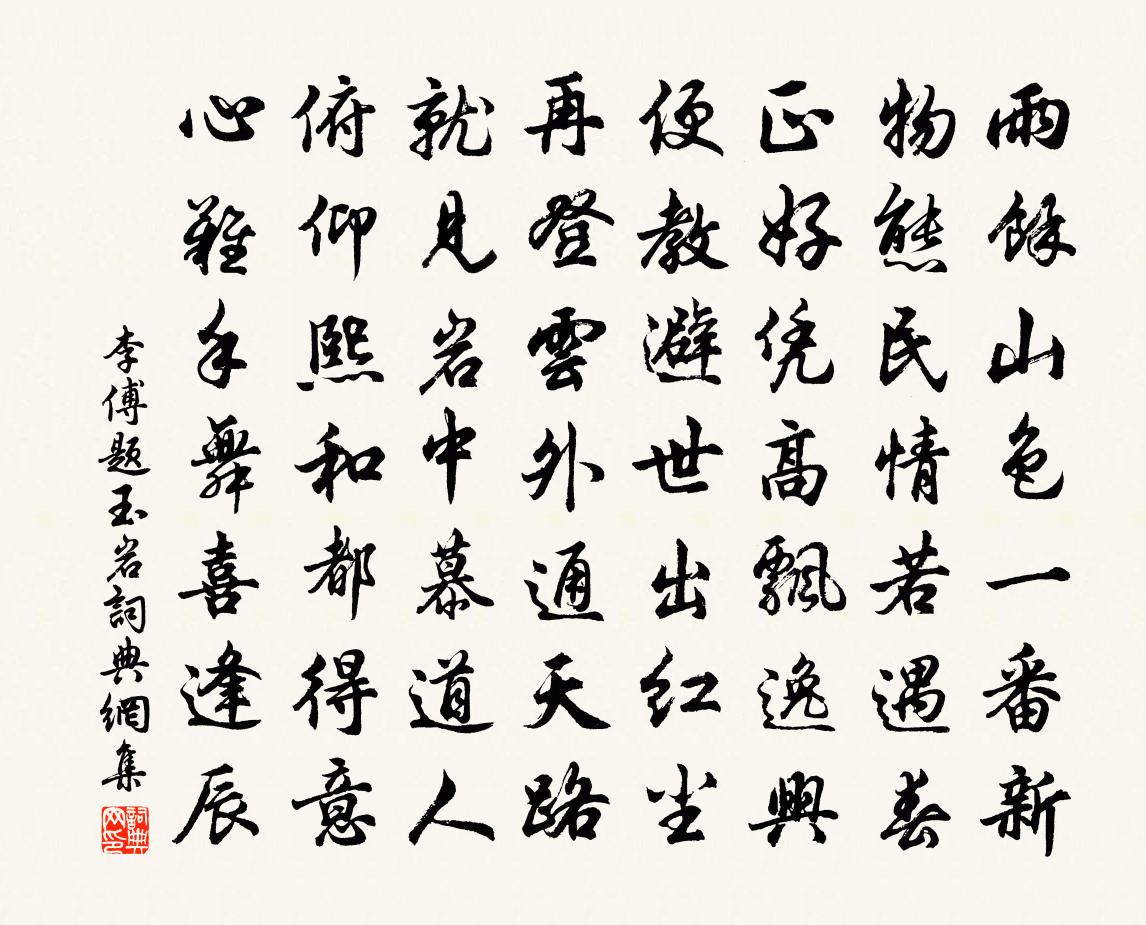 雨餘山色一番新
物態民情若遇春
正好凭高飄逸興
便教避世出红尘
再登雲外通天路
就見岩中慕道人
俯仰熙和都得意
心難手舞喜逢辰
李傅题玉岩詞典網集
詞典网印